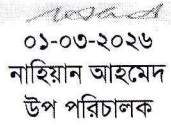 ০১-০৩-২০২৬
নাহিয়ান আহমেদ
উপ পরিচালক